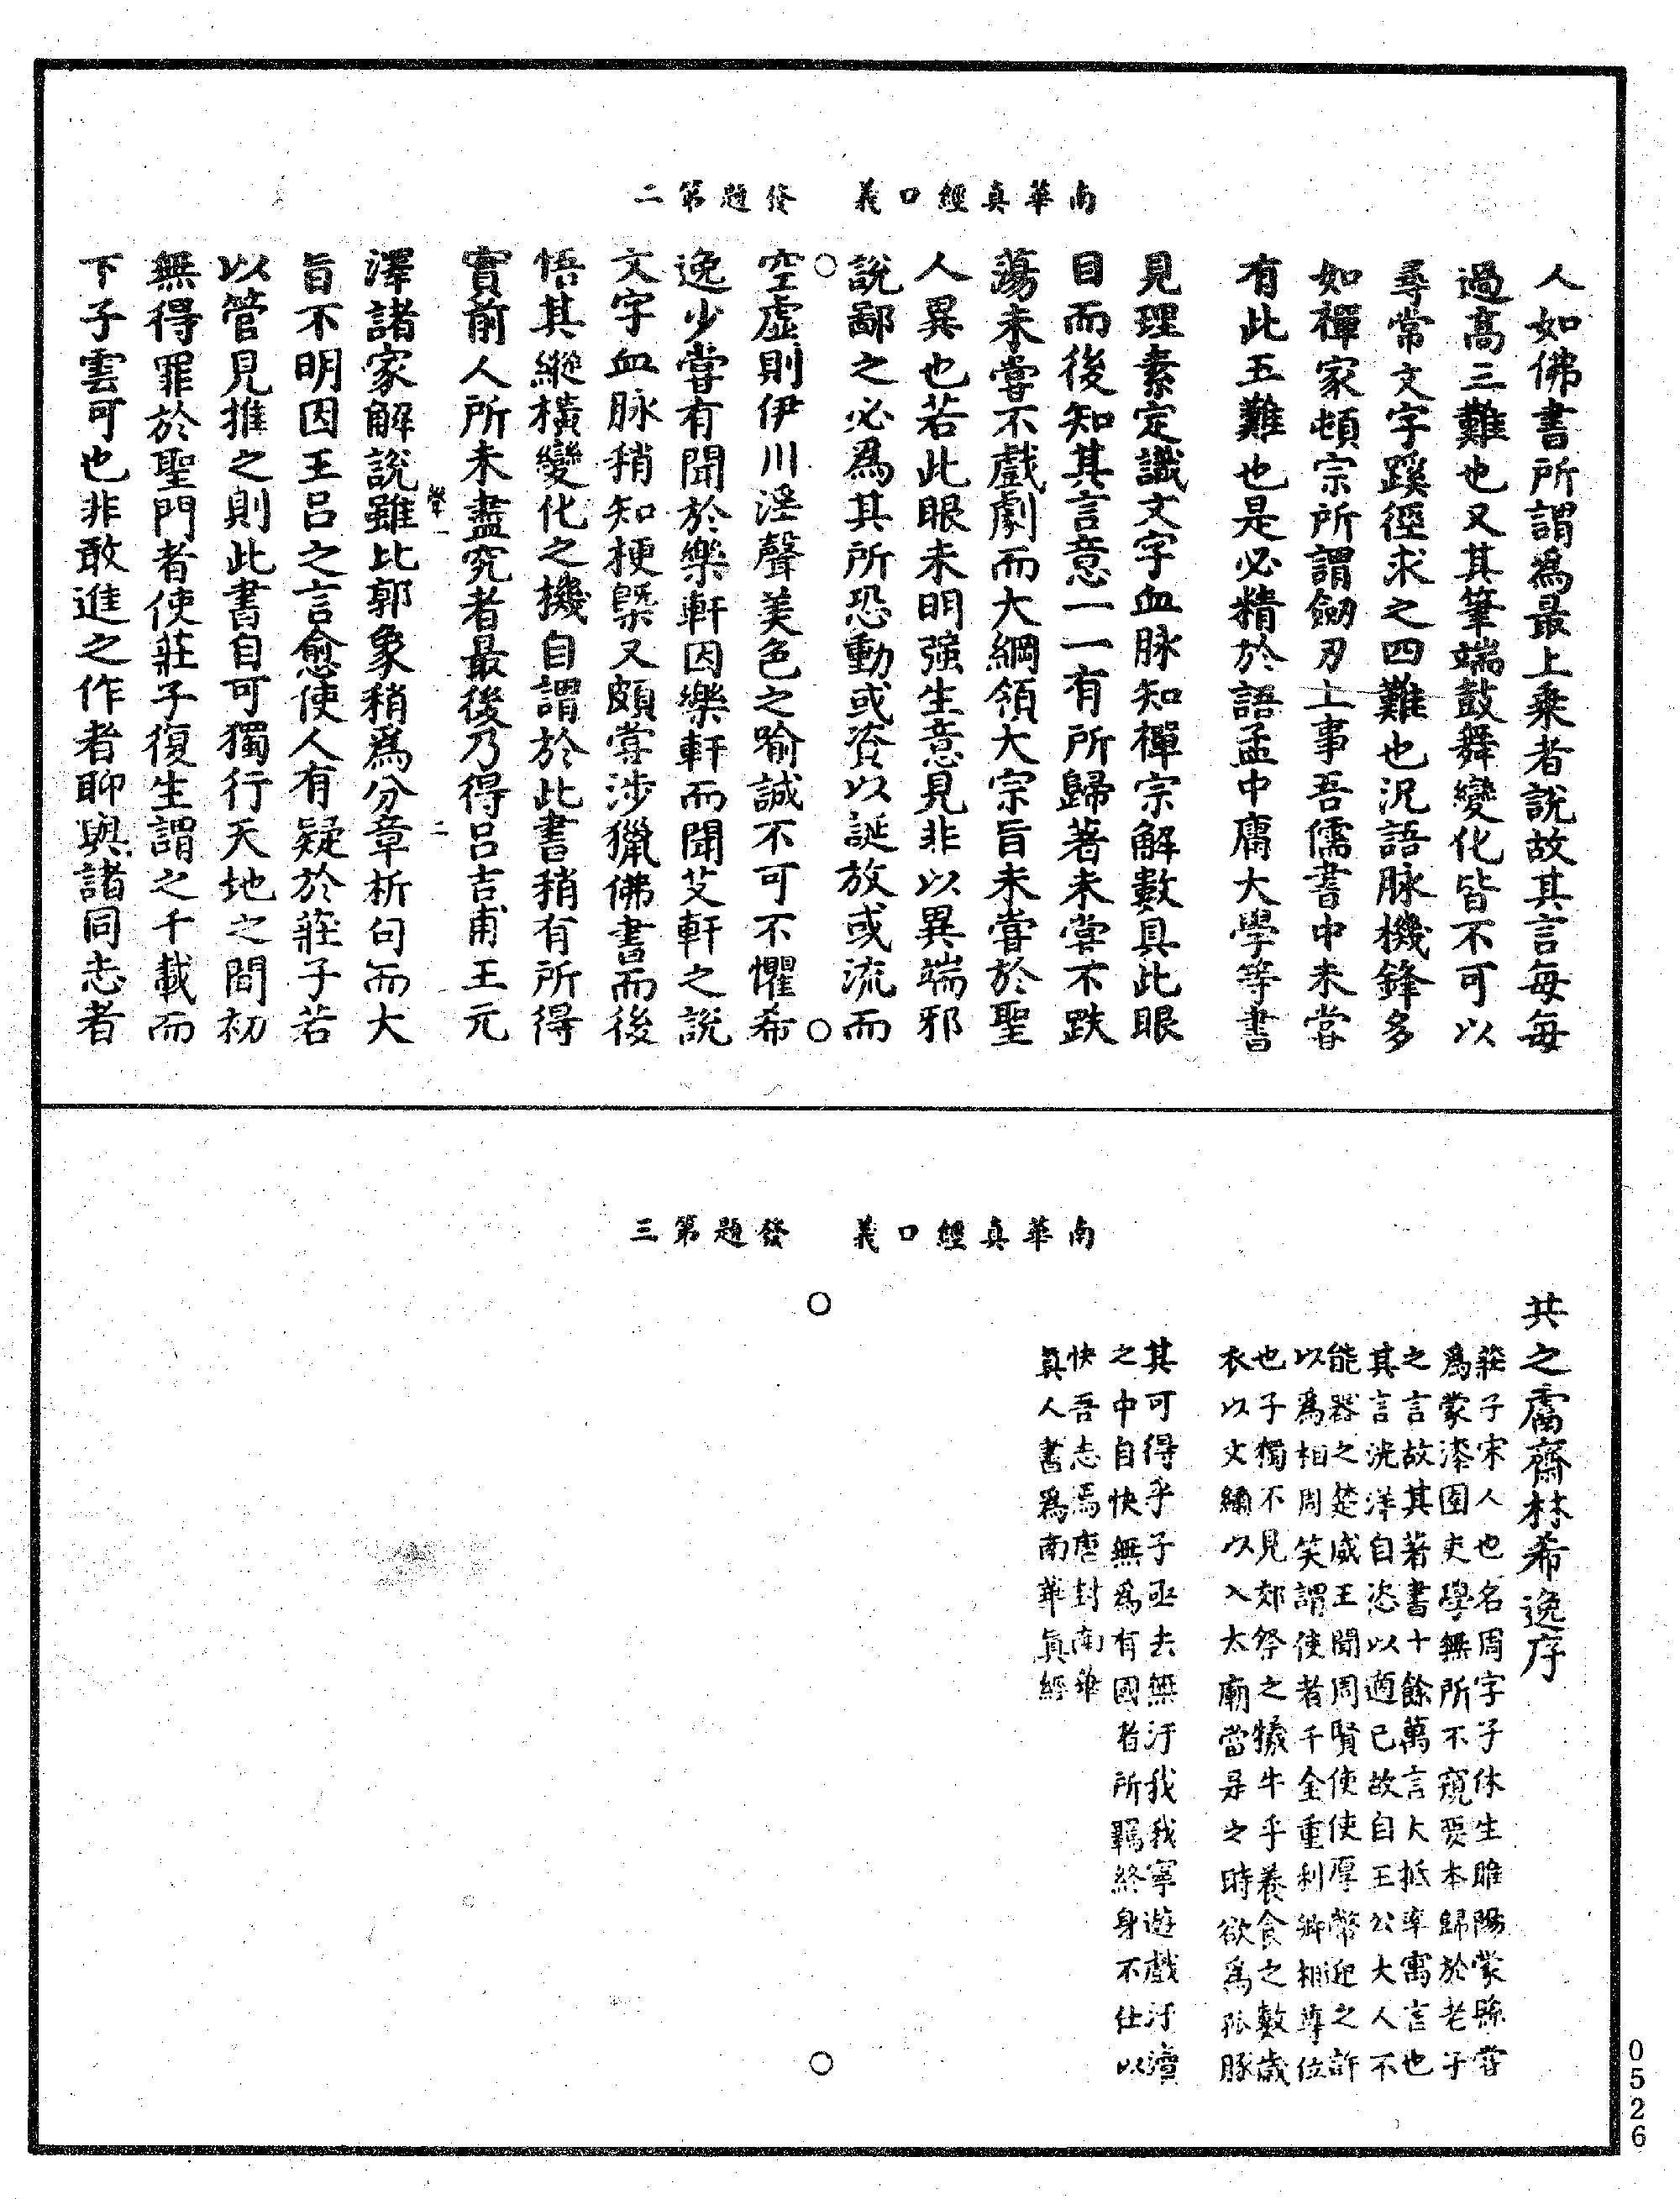 南華真經口義　發題第二
人如佛書所謂為最上乗者說故其言每每
過高三難也又其筆端鼓舞變化皆不可以
尋常文字蹊徑求之四難也況語脉機鋒多
如禪家頓宗所謂劒刃上事吾儒書中未嘗
有此五難也是必精於語孟中庸大學等書
見理素定識文字血脉知禪宗解數具此眼
目而後知其言意一一有所歸著未嘗不跌
蕩未嘗不戲劇而大綱領大宗旨未嘗於聖
人異也若此眼未明強生意見非以異端邪
說鄙之必為其所恐動或資以誕放或流而
空虛則伊川淫聲美色之喻誠不可不懼希
逸少嘗有聞於樂軒因樂軒而聞艾軒之說
文字血脉稍知梗槩又頗嘗涉獵佛書而後
悟其縱橫變化之機自謂於此書稍有所得
實前人所未盡究者最後乃得呂吉甫王元
二
澤諸家解說雖比郭象稍為分章析句而大
旨不明因王呂之言愈使人有疑於莊子若
以管見推之則此書自可獨行天地之間初
無得罪於聖門者使莊子復生謂之千載而
下子雲可也非敢進之作者聊與諸同志者
南華真經口義　發題第三
共之鬳齋林希逸序
莊子宋人也名周字子休生睢陽蒙縣嘗
為蒙漆園吏學無所不窺要本歸於老子
之言故其著書十餘萬言大抵率寓言也
其言洸洋自恣以適己故自王公大人不
能器之楚威王聞周賢使使厚幣迎之許
以為相周笑謂使者千金重利卿相尊位
也子獨不見郊祭之犧牛乎養食之數歲
衣以文繡以入太廟當是之時欲為孤豚
其可得乎子亟去無汙我我寧遊戲汙瀆
之中自快無為有國者所羈終身不仕以
快吾志焉唐封南華
真人書為南華真經
0526